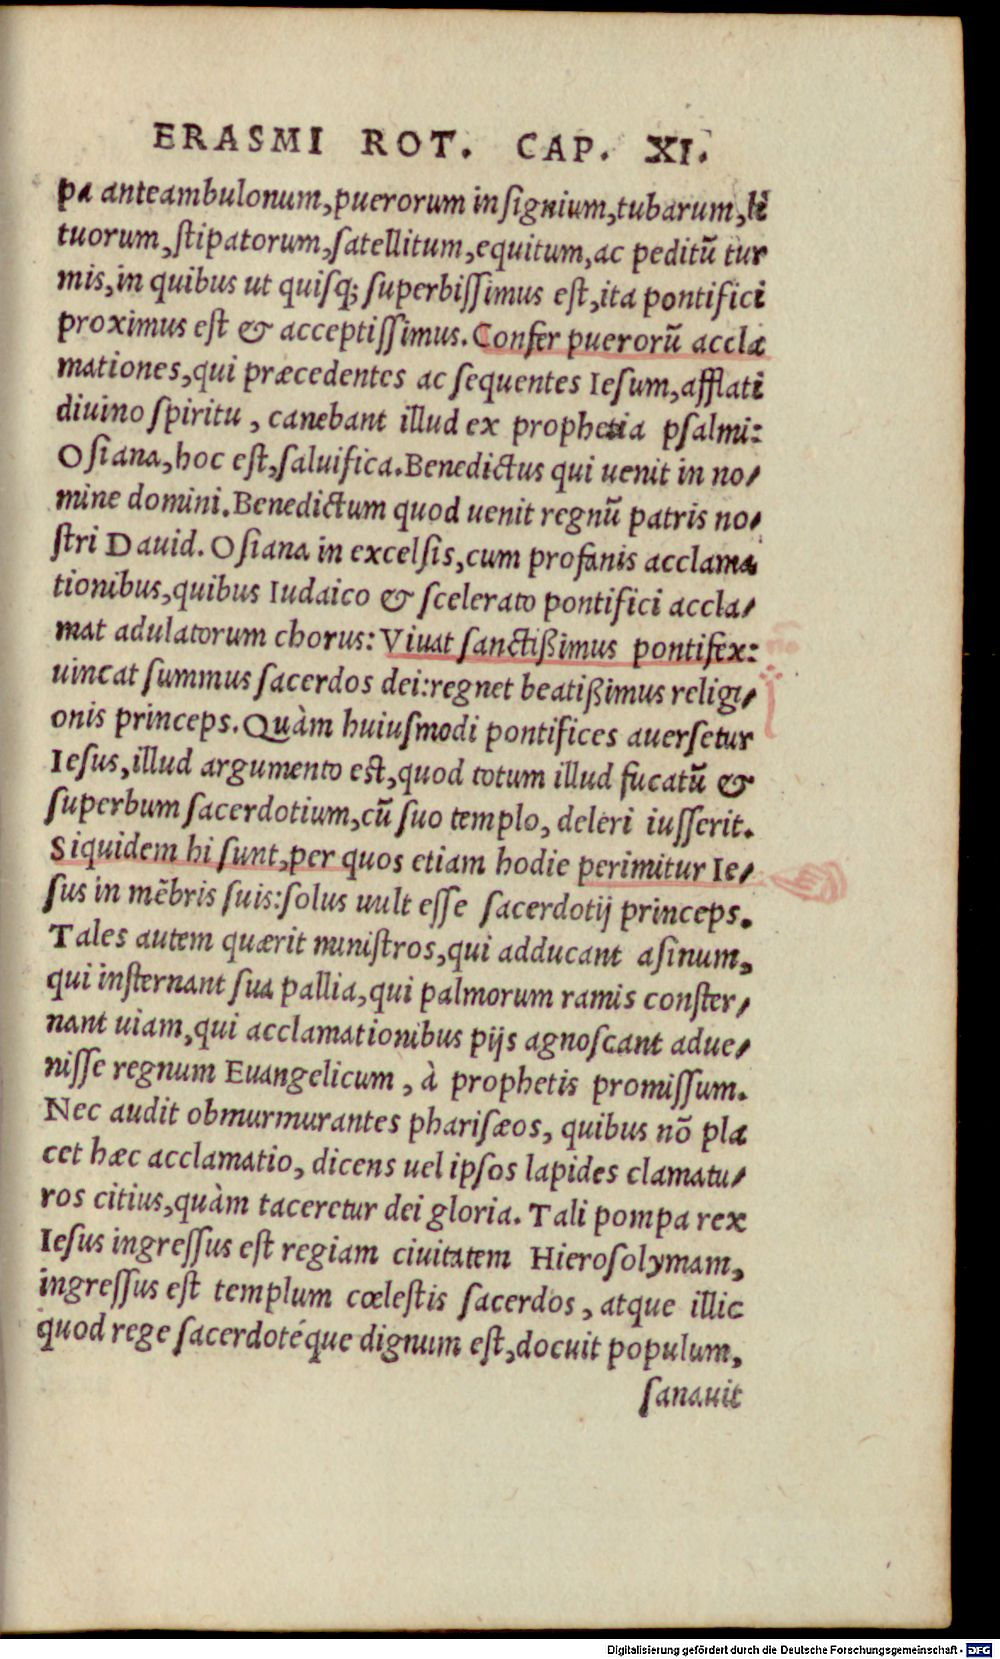 ERASMI ROT. CAP. XI.
pa anteambulonum, puerorum insignium, tubarum, li
tuorum, stipatorum, satellitum, equitum, ac peditū tur
mis, in quibus ut quisq; superbissimus est, ita pontifici
proximus est & acceptissimus. Confer puerorū accla
mationes, qui præcedentes ac sequentes Iesum, afflati
diuino spiritu, canebant illud ex prophetia psalmi:
Osiana, hoc est, saluifica. Benedictus qui uenit in no/
mine domini. Benedictum quod uenit regnū patris no/
stri Dauid. Osiana in excelsis, cum profanis acclama
tionibus, quibus Iudaico & scelerato pontifici accla/
mat adulatorum chorus: Viuat sanctißimus pontifex:
uincat summus sacerdos dei: regnet beatißimus religi/
onis princeps. Quàm huiusmodi pontifices auersetur
Iesus, illud argumento est, quod totum illud fucatū &
superbum sacerdotium, cū suo templo, deleri iusserit.
Siquidem hi sunt, per quos etiam hodie perimitur Ie/
sus in mēbris suis: solus uult esse sacerdotij princeps.
Tales autem quærit ministros, qui adducant asinum,
qui insternant sua pallia, qui palmorum ramis conster/
nant uiam, qui acclamationibus pijs agnoscant adue/
nisse regnum Euangelicum, à prophetis promissum.
Nec audit obmurmurantes pharisæos, quibus nō pla
cet hæc acclamatio, dicens uel ipsos lapides clamatu/
ros citius, quàm taceretur dei gloria. Tali pompa rex
Iesus ingressus est regiam ciuitatem Hierosolymam,
ingressus est templum cœlestis sacerdos, atque illic
quod rege sacerdotéque dignum est, docuit populum,
sanauit
Digitalisierung gefördert durch die Deutsche Forschungsgemeinschaft - DFG